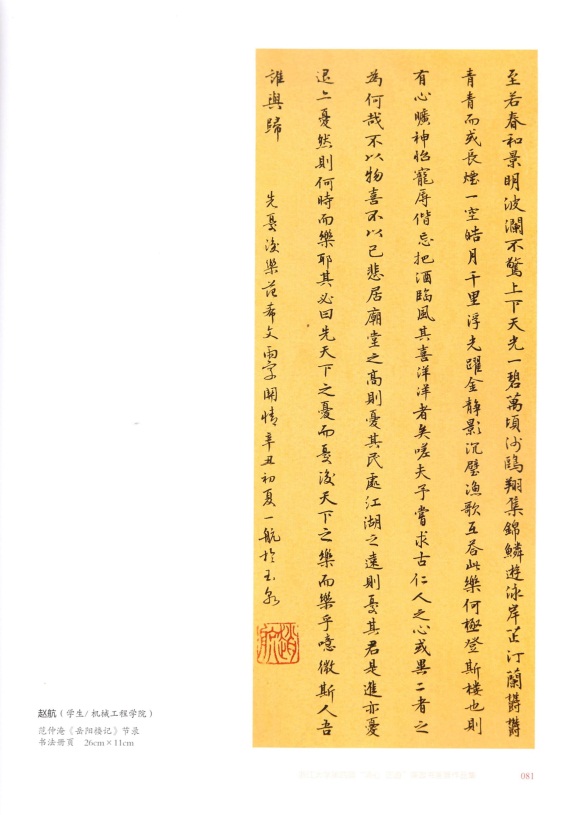 至若春和景明波瀾不驚上下天光一碧萬頃沙鷗翔集錦鱗遊泳岸芷汀蘭欝欝
青青而或長煙一空皓月千里浮光躍金靜影沉璧漁歌互荅此樂何極登斯樓也則
有心曠神怡寵辱偕忘把酒臨風其喜洋洋者矣嗟夫予嘗求古仁人之心或異二者之
為何哉不以物喜不以己悲居廟堂之高則憂其民處江湖之遠則憂其君是進亦憂
退亦憂然則何時而樂耶其必曰先天下之憂而憂後天下之樂而樂乎噫微斯人吾
誰與歸
先憂後樂范希文兩字關情辛丑初夏一航於玉泉
趙航
赵航（学生/机械工程学院）
范仲淹《岳阳楼记》节录
书法册页 26cm×11cm
081